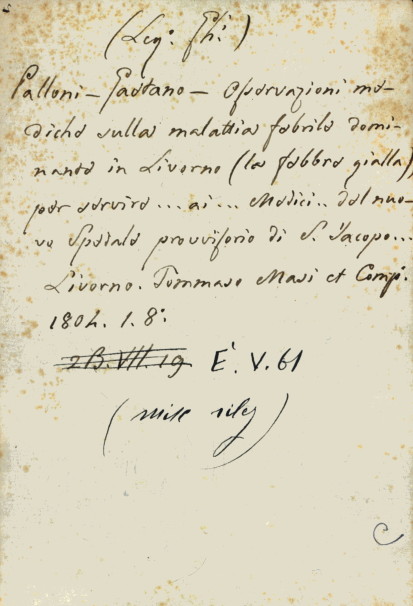 (Leg:
Palloni - Gaetano - Osservazioni me-
diche sulla malattia febrile domi-
nante in Livorno (la febbre gialla)
per servire ... ai ... Medici .. del nuo-
vo Spedale provvisorio di S. Jacopo ...
Livorno. Tommaso Masi et Comp:
1804. 1. 8:
2B. VII. 19 E. V. 61
(
C